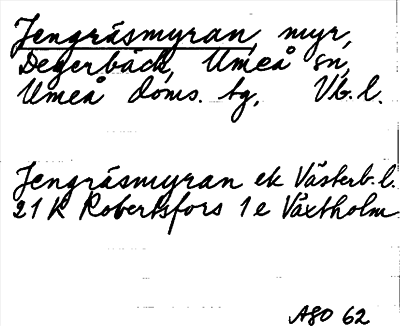 Jengräsmyran, myr,
Degerbäck, Umeå sn,
Umeå doms. tg, Vb. l.
Jengräsmyran ek Västerb. l.
21 K Robertsfors 1 e Växtholm
ASO 62